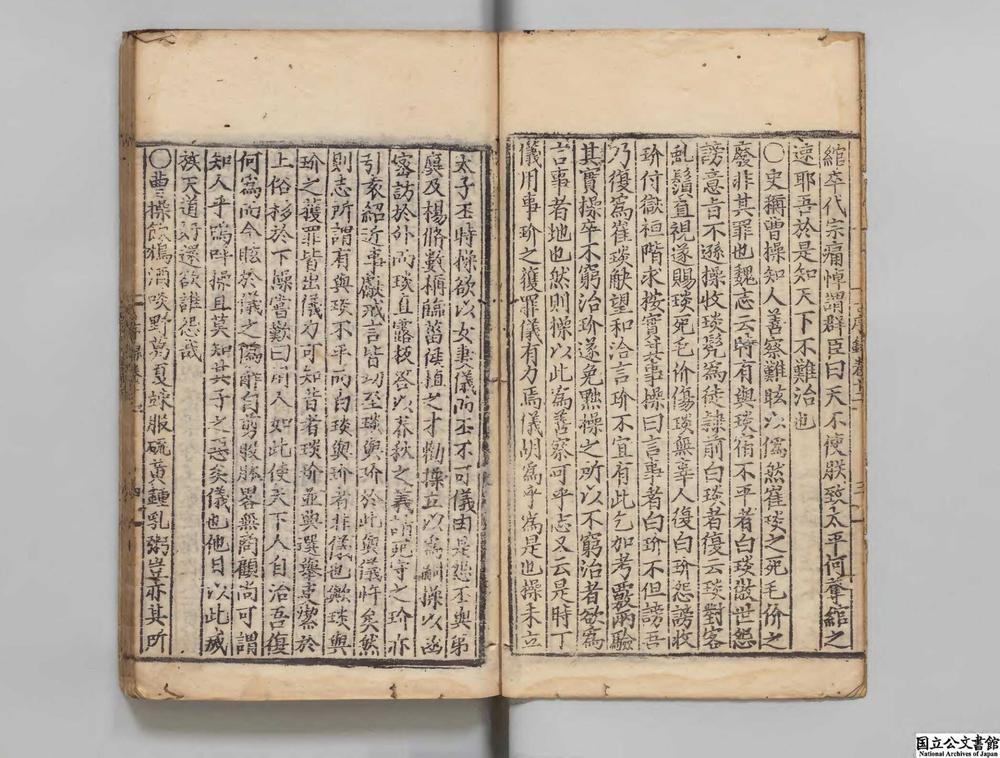 綰卒代宗痛悼謂群臣曰天不使朕致太平何奪綰之
速耶吾於是知天下不難治也
〇史稱曹操知人善察難眩以僞然崔琰之死毛玠之
廢非其罪也魏志云時有與琰宿不平者白琰傲世怨
謗意旨不遜操收琰髡爲徒隷前白琰者復云琰對客
虬鬚直視遂賜琰死毛玠傷琰無辜人復白玠怨謗收
玠付獄桓階求按實其事操曰言事者白玠不但謗吾
乃復爲崔琰觖望和洽言玠不宜有此乞加考覈兩驗
其實操卒不窮治玠遂免黜操之所以不窮治者欲爲
言事者地也然則操以此爲善察可乎志又云是時丁
儀用事玠之獲罪儀有力焉儀胡爲乎爲是也操未立
太子丕時操欲以女妻儀而丕不可儀由是怨丕與弟
廙及楊脩數稱臨菑侯植之才勸操立以爲嗣操以函
密訪於外而琰直露板答以春秋之義請死守之玠亦
引袁紹近事獻戒言皆切至琰與玠於此與儀忤矣然
則志所謂有與琰不平而白琰與玠者非儀也歟琰與
玠之獲罪皆出儀力可知昔者琰玠並典選擧吏潔於
上俗移於下操嘗歎曰用人如此使天下人自治吾復
何爲而今眩於儀之僞辭自剪股肱畧無商顧尚可謂
知人乎嗚呼操且莫知其子之惡矣儀也他日以此滅
族天道好還欲誰怨哉
〇曹操飮鴆酒啖野葛夏竦服硫黃鍾乳粥豈亦其所
国立公文書館
National Archives of Japan